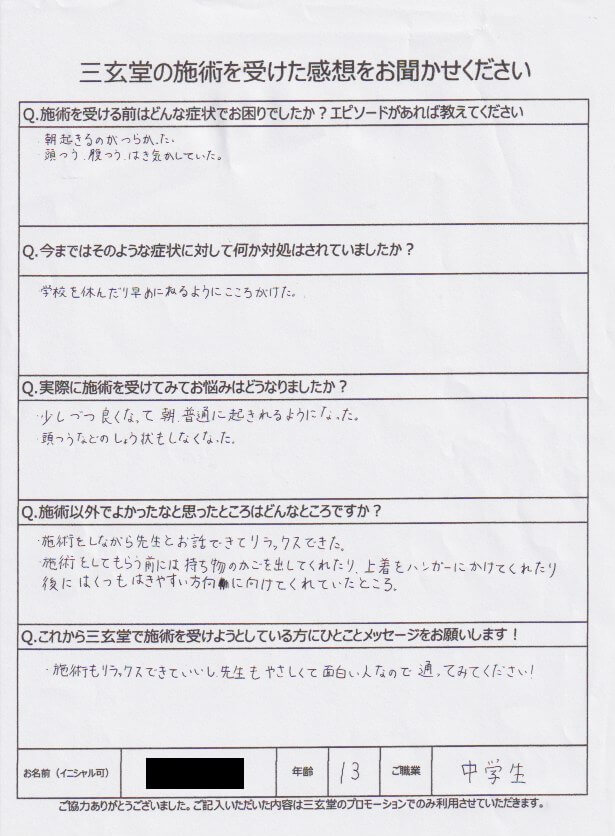 三玄堂の施術を受けた感想をお聞かせください
Q.施術を受ける前はどんな症状でお困りでしたか？エピソードがあれば教えてください
・朝起きるのがつらかった。
・頭つう、腹つう、はき気がしていた。
Q.今まではそのような症状に対して何か対処はされていましたか？
学校を休んだり早めにねるようにこころがけた。
Q.実際に施術を受けてみてお悩みはどうなりましたか？
・少しづつ良くなって朝、普通に起きれるようになった。
・頭つうなどのしょう状もしなくなった。
Q.施術以外でよかったなと思ったところはどんなところですか？
・施術をしながら先生とお話できてリラックスできた。
・施術をしてもらう前には持ち物のかごを出してくれたり、上着をハンガーにかけてくれたり
後にはくつもはきやすい方向に向けてくれていたところ。
Q.これから三玄堂で施術を受けようとしている方にひとことメッセージをお願いします！
・施術もリラックスできていいし先生もやさしくて面白い人なので通ってみてください！
お名前（イニシャル可） 年齢 13 ご職業 中学生
ご協力ありがとうございました。ご記入いただいた内容は三玄堂のプロモーションでのみ利用させていただきます。